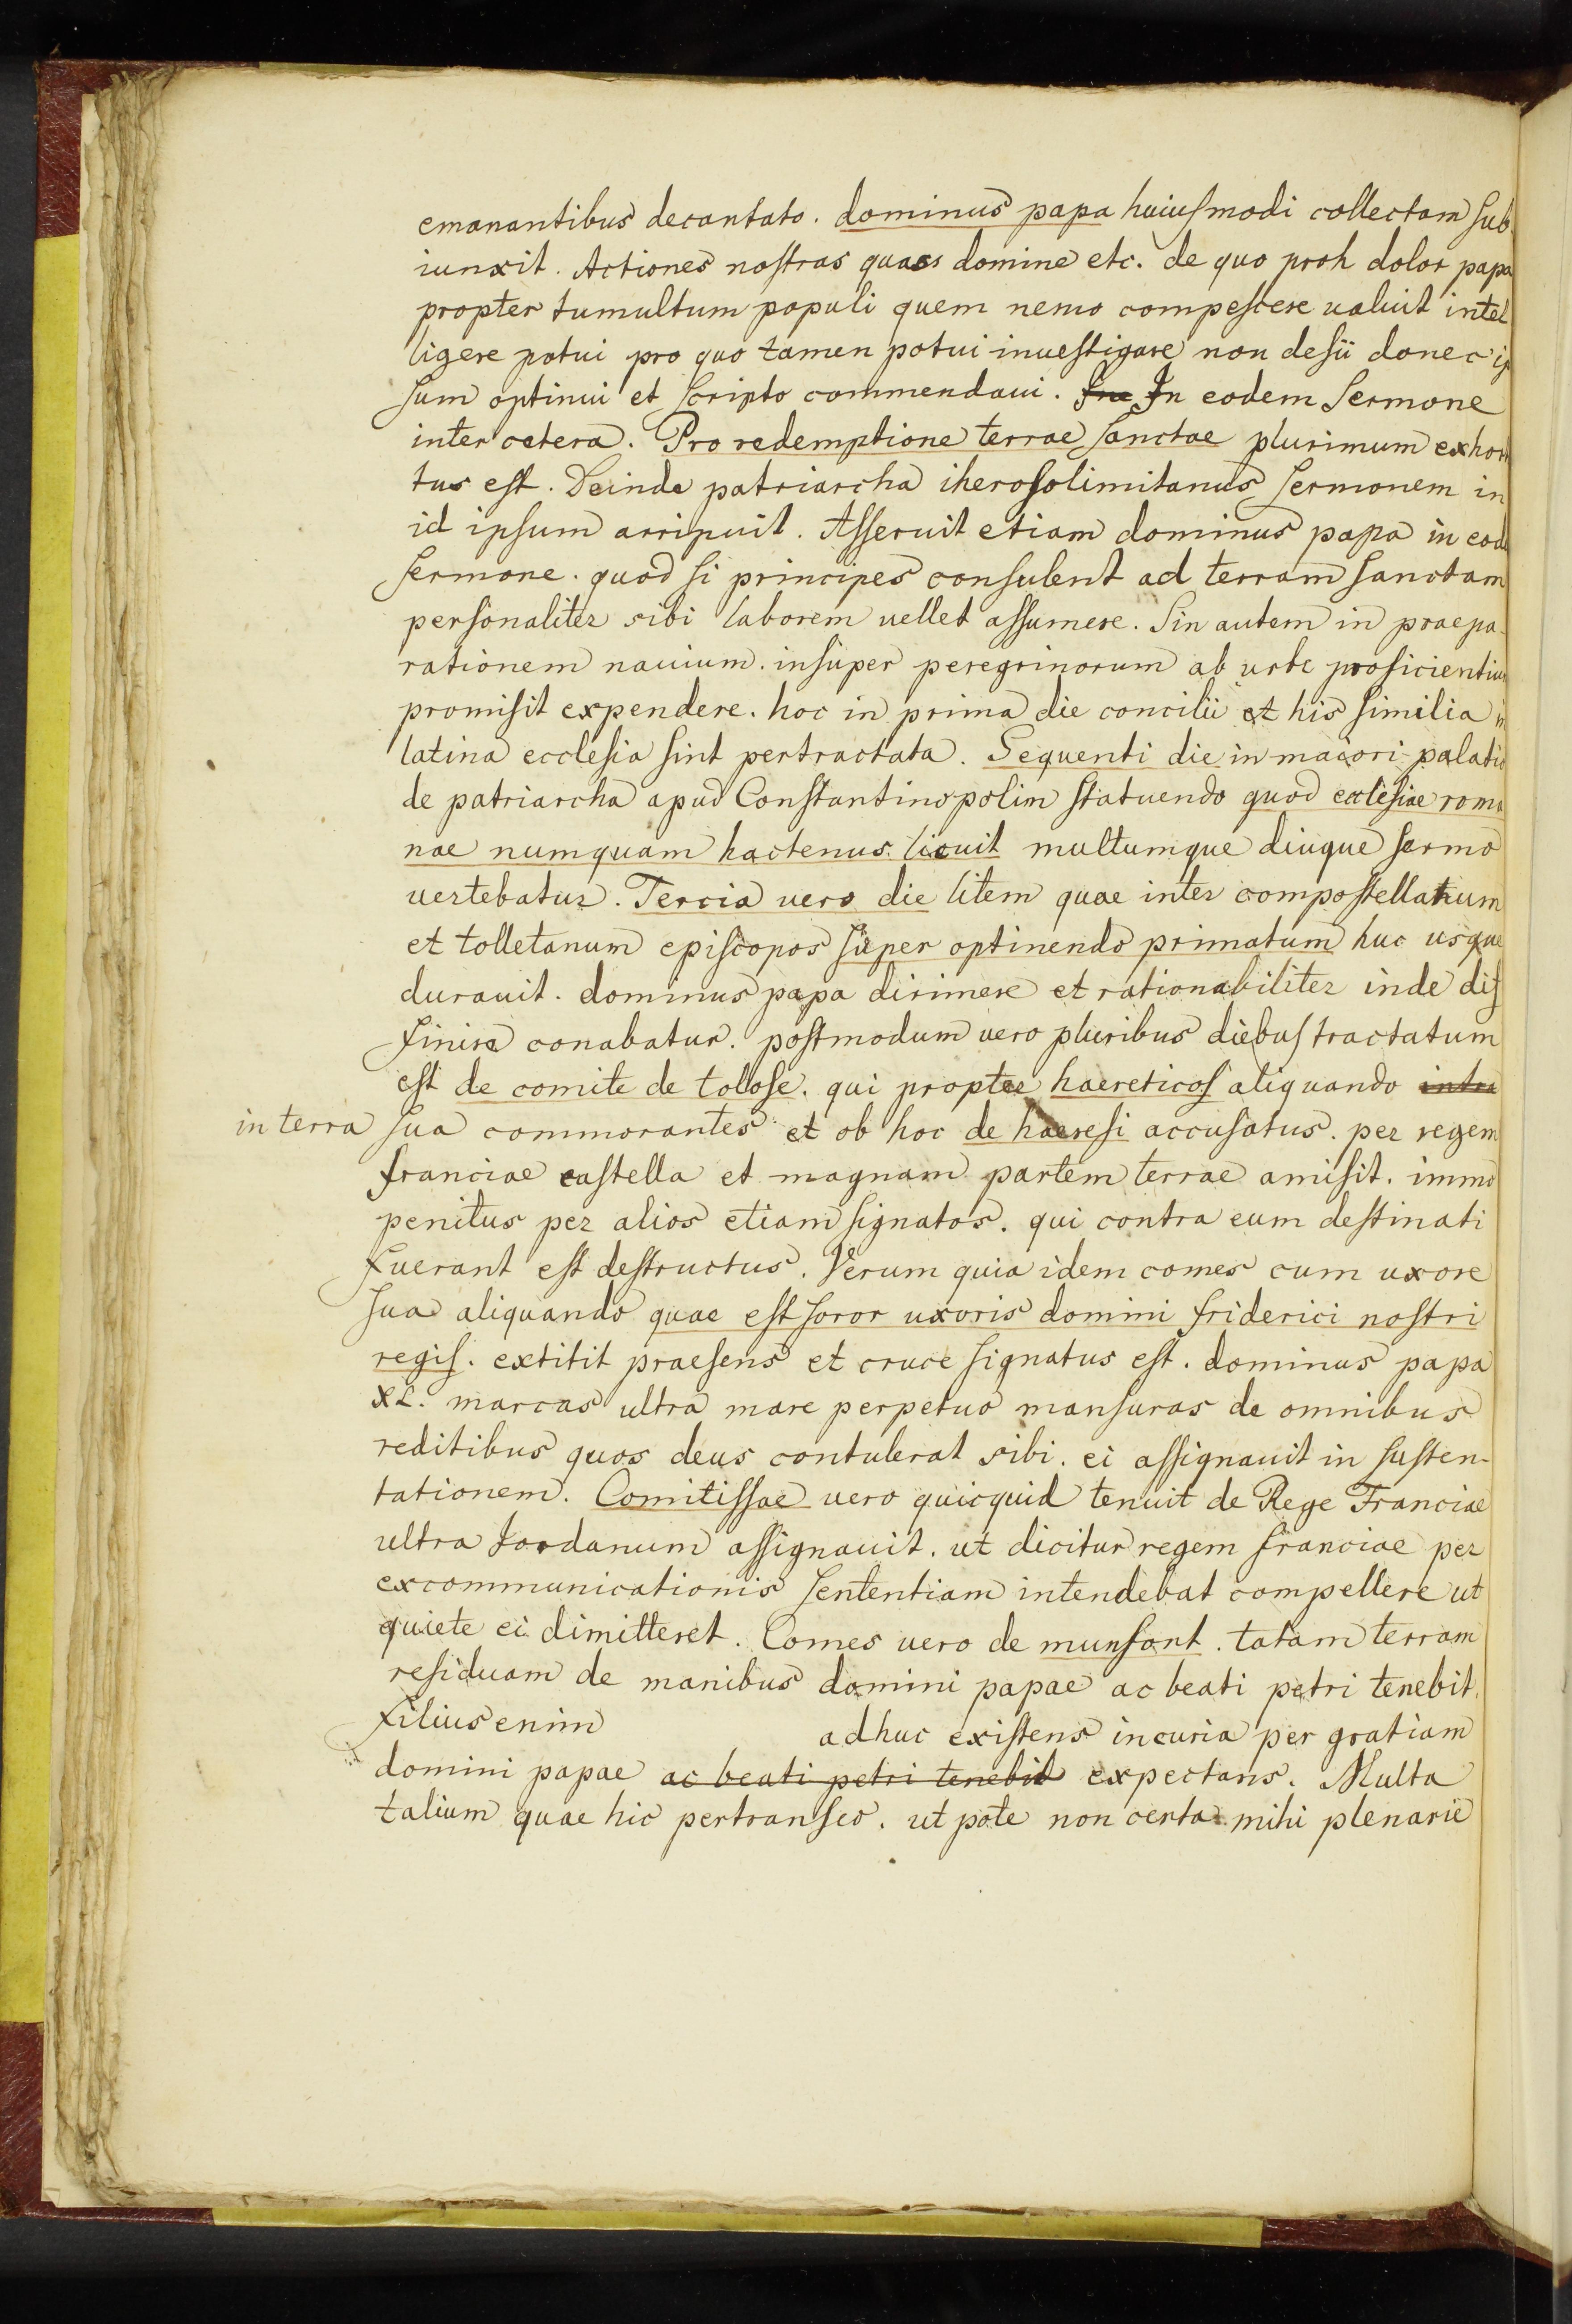 emanantibus decantato. dominus papa huiusmodi collectam sub
iunxit. Actiones nostras quaes domine etc. de quo proh dolor papa
propter tumultum populi quem nemo compescere ualuit intel
ligere potui pro quo tamen potui inuestigare non desii donec ip
sum optinui et scripto commendaui. In eodem sermone
inter cetera. Pro redemptione terrae sanctae plurimum exhor
tus est. Deinde patriarcha iherosolimitanus sermonem in
id ipsum arripuit. Asseruit etiam dominus papa in eod
sermone. quod si principes consulent ad terram sanctam
personaliter sibi laborem uellet assumere. Sin autem in praepa
rationem nauium. insuper peregrinorum ab urbe proficientium
promisit expendere. hoc in prima die concilii et his similia in
latina ecclesia sint pertractata. Sequenti die in maiori palatio
de patriarcha apud Constantinopolim statuendo quod ecclesiae roma
nae numquam hactenus licuit multumque diuque sermo
uertebatur. Tercia uero die litem quae inter compostellanum
et tolletanum episcopos super optinendo primatum huc usque
durauit. dominus papa dirimere et rationabiliter inde dif
finire conabatur. postmodum uero pluribus diebus tractatum
est de comite de tolose. qui propter haereticos aliquando intra
in terra sua commorantes et ob hoc de haeresi accusatus. per regem
franciae castella et magnam partem terrae amisit. immo
penitus per alios etiam signatos. qui contra eum destinati
fuerant est destructus. Verum quia idem comes cum uxore
sua aliquando quae est soror uxoris domini friderici nostri
regis. extitit praesens et cruce signatus est. dominus papa
XL. marcas ultra mare perpetuo mansuras de omnibus
reditibus quos deus contulerat sibi. ei assignauit in susten-
tationem. Comitissae uero quicquid tenuit de Rege Franciae
ultra Jordanum assignauit. ut dicitur regem franciae per
excommunicationis sententiam intendebat compellere ut
quiete ei dimitteret. Comes uero de munfort. totam terram
residuam de manibus domini papae ac beati petri tenebit.
filius enim adhuc existens in curia per gratiam
domini papae ac beati petri tenebit expectans. Multa
talium quae hic pertranseo. ut pote non certa mihi plenarie